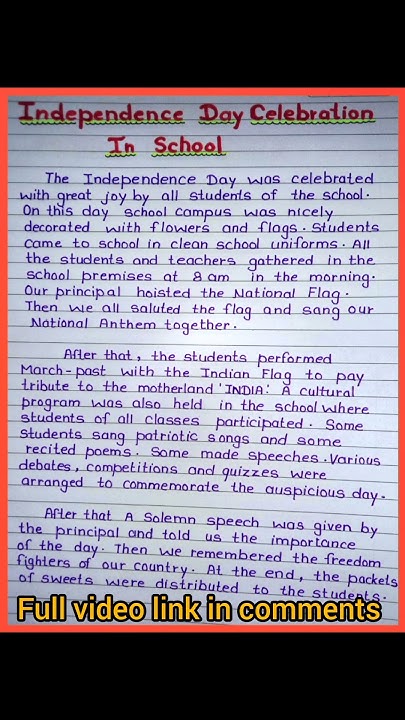 Independence Day Celebration
In School
The Independence Day was celebrated
with great joy by all students of the school.
On this day school campus was nicely
decorated with flowers and flags. Students
came to school in clean school uniforms. All
the students and teachers gathered in the
school premises at 8 am in the morning.
Our principal hoisted the National Flag.
Then we all saluted the flag and sang our
National Anthem together.
After that, the students performed
March-past with the Indian Flag to pay
tribute to the motherland 'INDIA'. A cultural
program was also held in the school where
students of all classes participated. Some
students sang patriotic songs and some
recited poems. Some made speeches. Various
debates, competitions and quizzes were
arranged to commemorate the auspicious day.
After that A Solemn speech was given by
the principal and told us the importance
of the day. Then we remembered the freedom
fighters of our country. At the end, the packets
of sweets were distributed to the students.
Full video link in comments